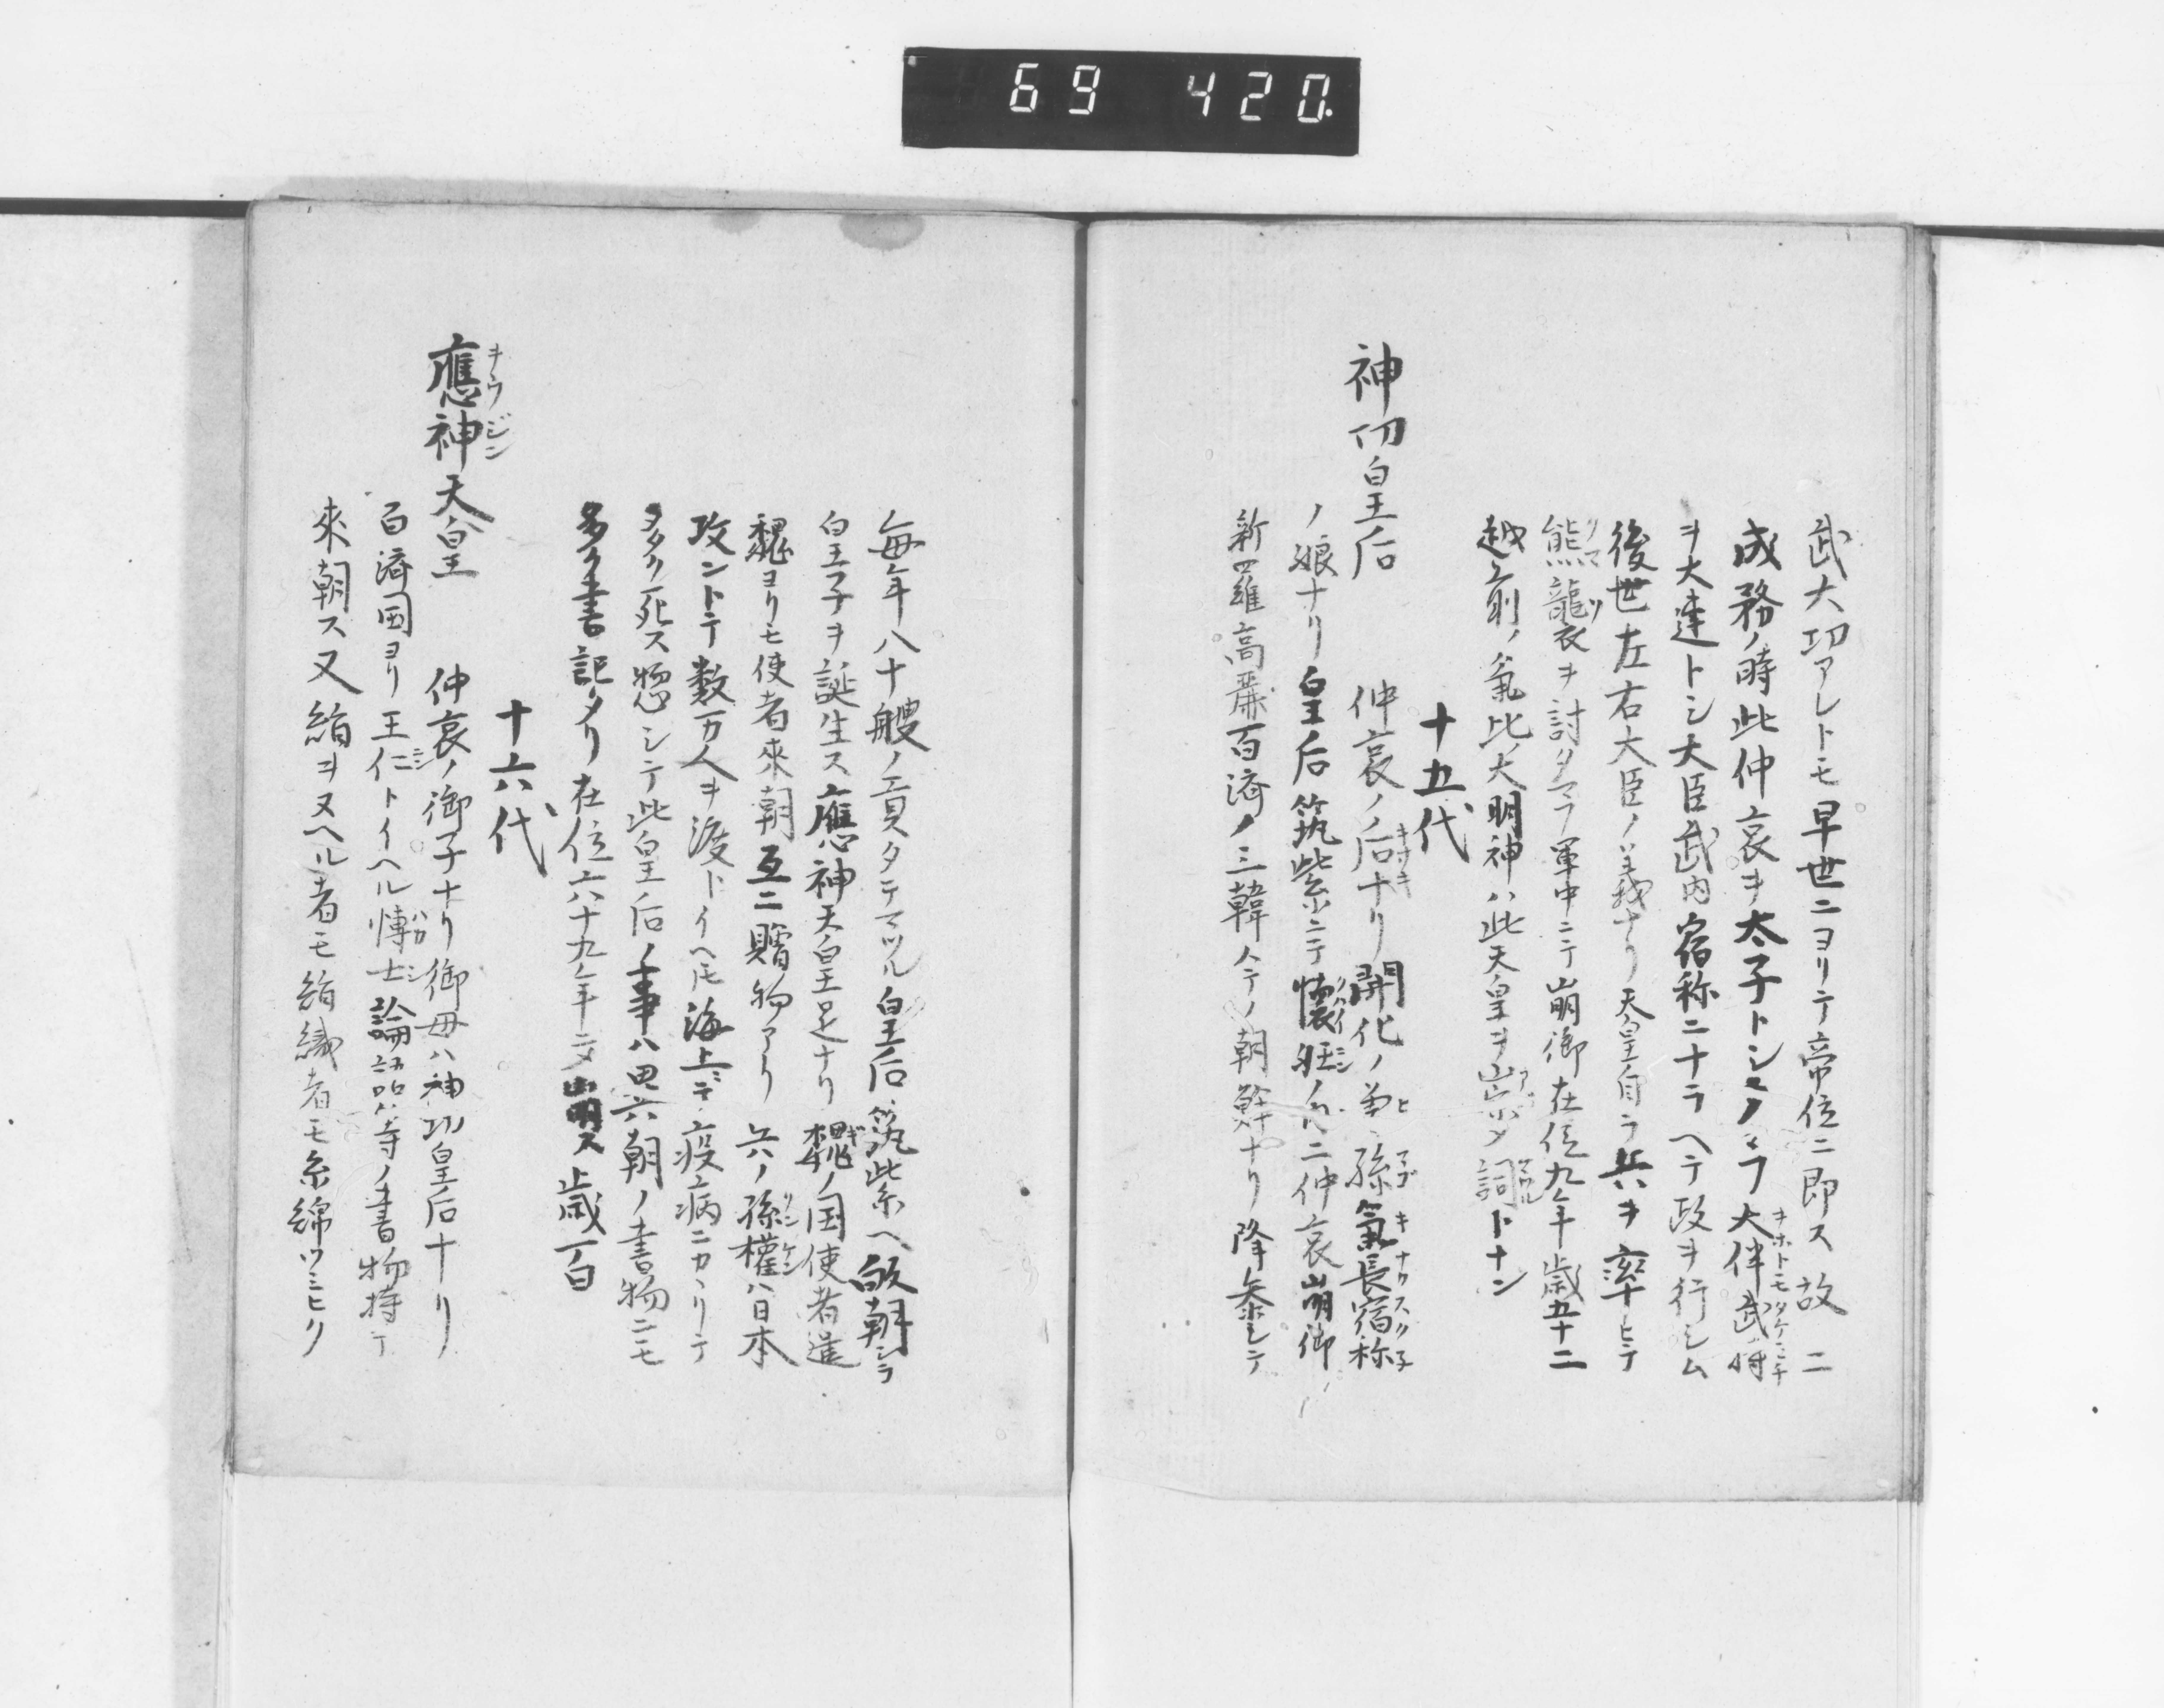 69 420.
武大切アレトモ早世ニヨリテ帝位ニ即ス故ニ
成務ノ時此仲哀ヲ太子トシタマフ大伴武持
ヲ大連トシ大臣武内宿祢ニナラヘテ政ヲ行シム
後世左右大臣ノ義ナリ天皇自ラ兵ヲ率ヒテ
熊襲ヲ討タマフ軍中ニテ崩御在位九年歳五十二
越前ノ氣比大明神ハ此天皇ヲ崇タ詞トナン
十五代
神切皇后 仲哀ノ后ナリ開化ノ曽孫氣長宿祢
ノ娘ナリ皇后筑紫ニテ懐妊ノ内ニ仲哀崩御
新羅高麗百済ノ三韓今ノ朝鮮ナリ降参シテ
毎年八十艘ノ貢タテマツル皇后筑紫ヘ皈朝シテ
皇子ヲ誕生ス應神天皇是ナリ魏ノ国使者進
魏ヨリモ使者來朝互ニ贈物アリ呉ノ孫權ハ日本
攻ントテ数万人ヲ渡トイヘ𪜈海上ニテ疫病ニカヽリテ
多ク死ス惣シテ此皇后ノ事ハ異朝ノ書物ニモ
多ク書記タリ在位六十九年ニテ崩ス歳一百
十六代
應神天皇 仲哀ノ御子ナリ御母ハ神功皇后ナリ
百済国ヨリ王仁トイヘル博士論語等ノ書物持テ
來朝ス又絹ヲヌヘル者モ絹織者モ糸綿ツミヒク